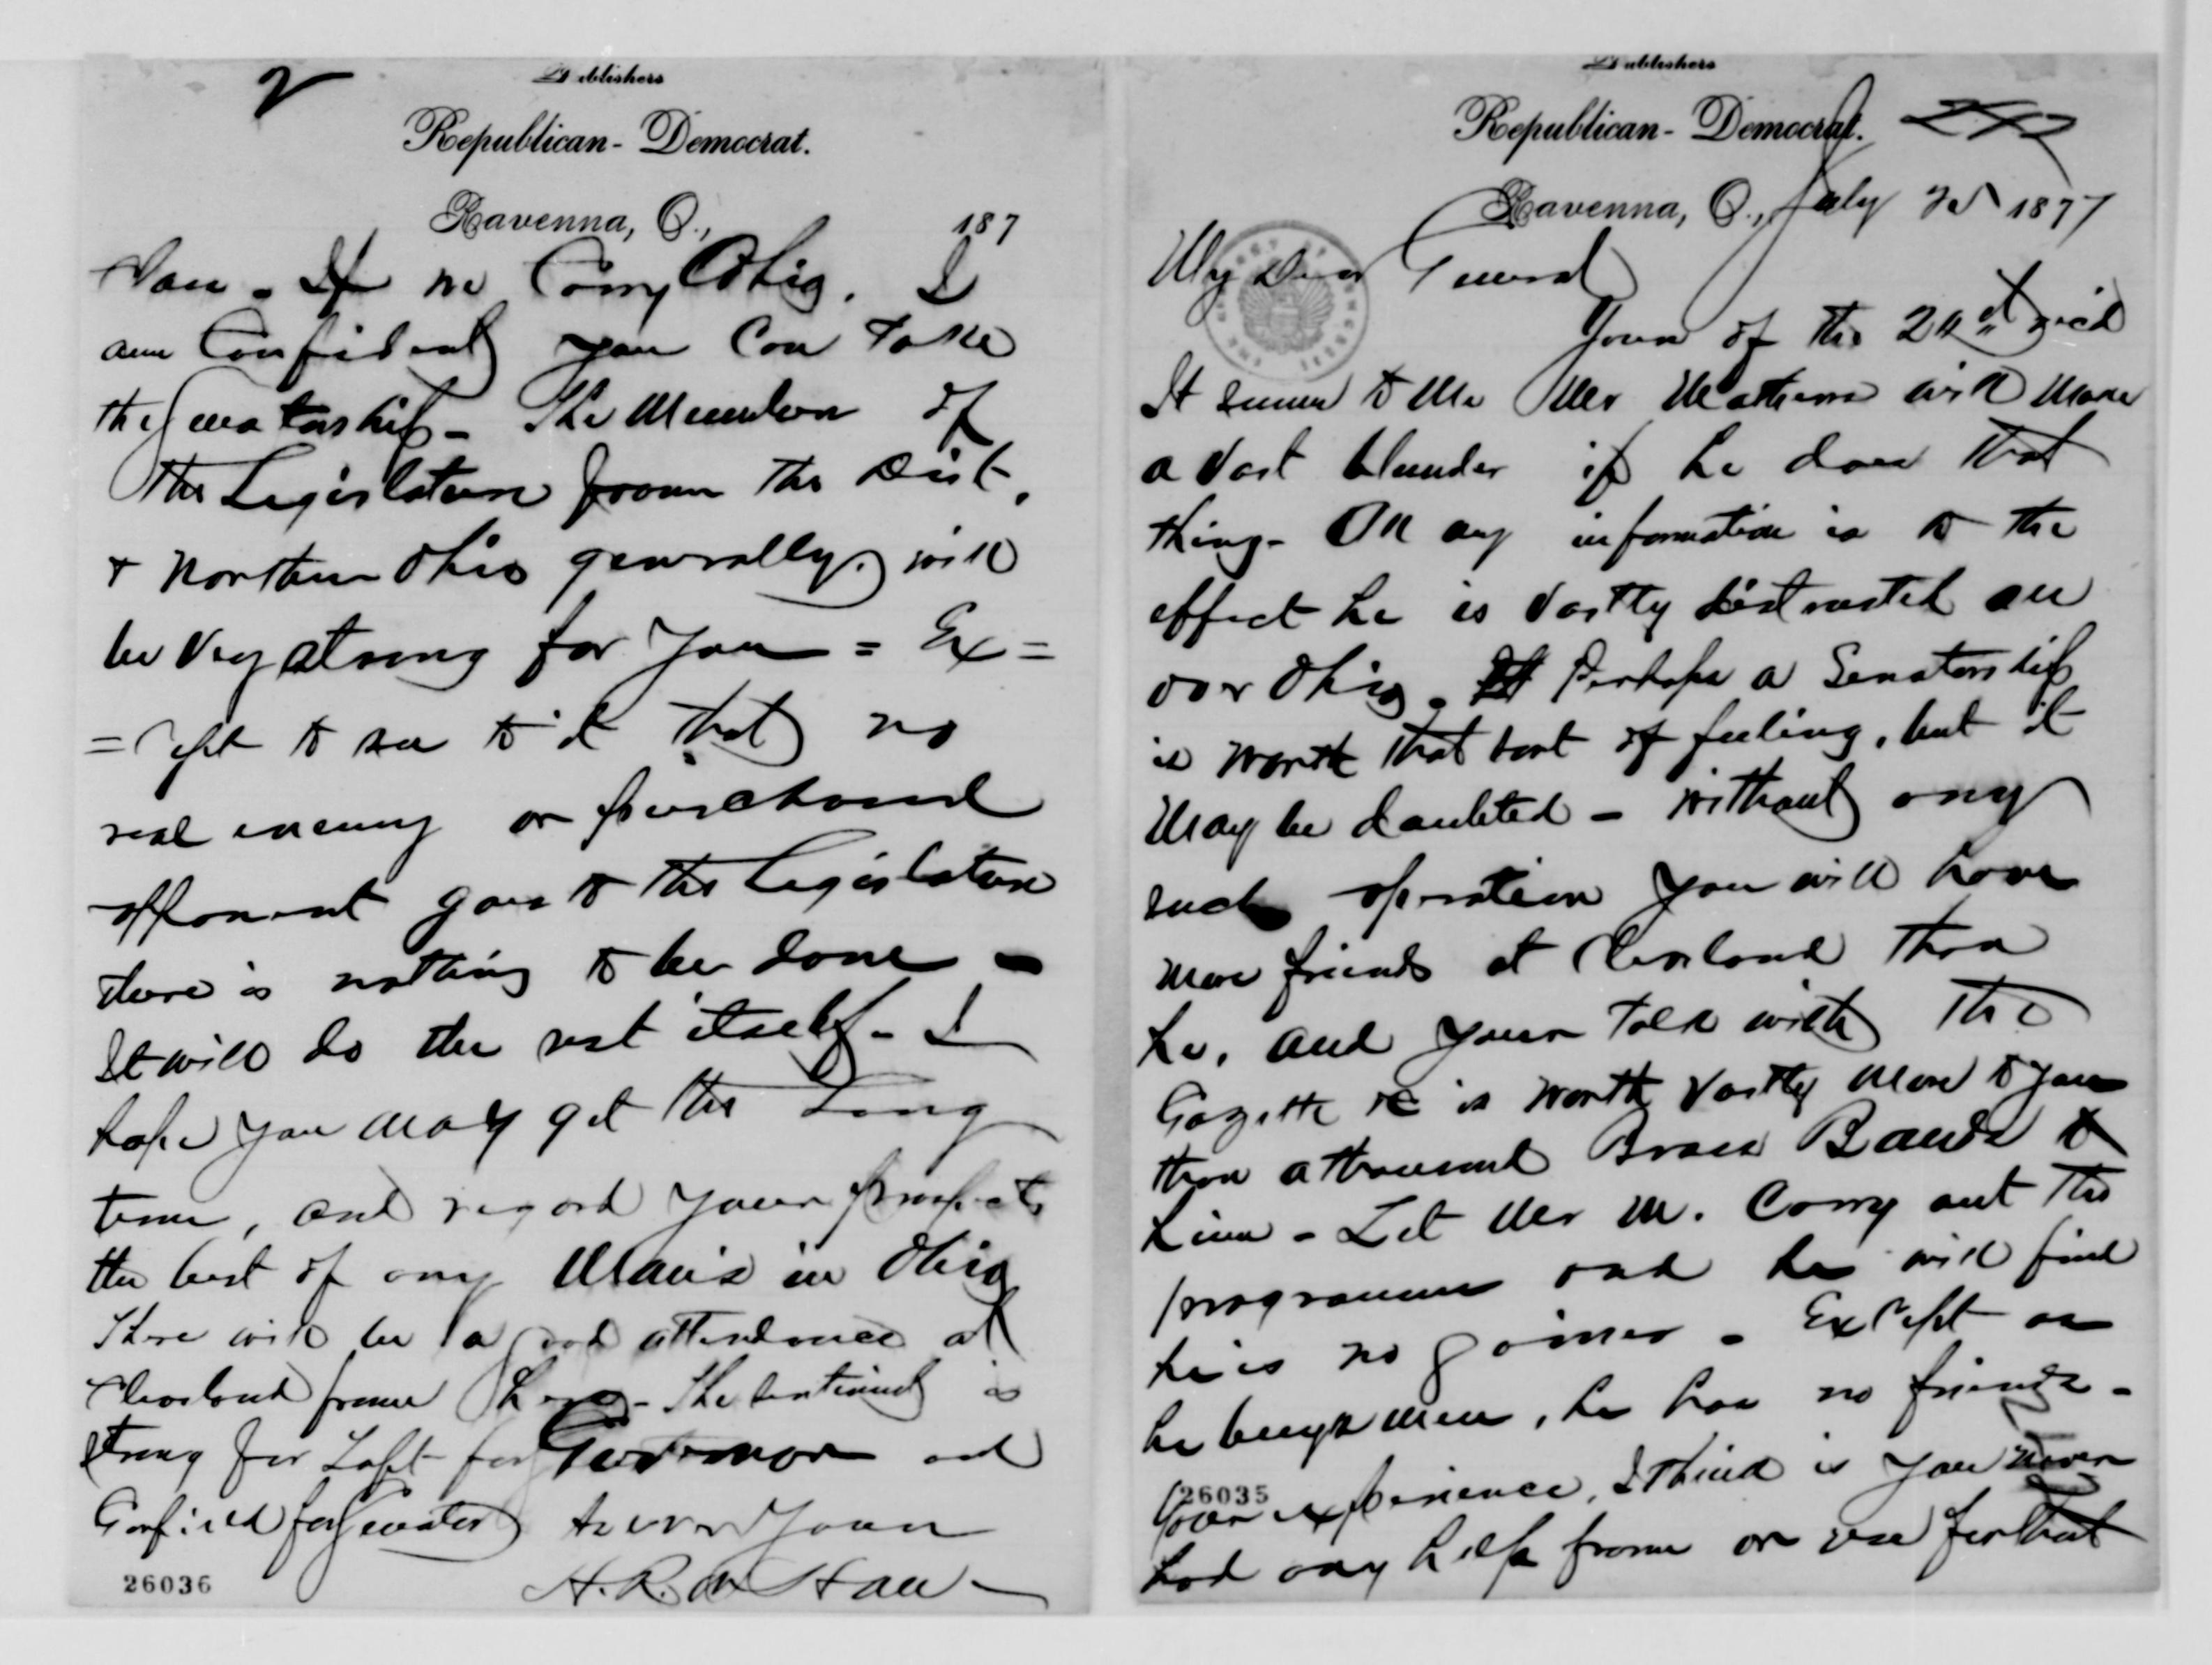 Publishers
Republican-Democrat.
Ravenna, O., July 25 1877
My Dear General
Yours of the 24th rec'd
It seems to me Mr Mathews will make
a vast blunder if he does that
thing - All my information is to the
effect he is vastly distrusted all
over Ohio. Perhaps a Senatorship
is worth that sort of feeling, but it
may be doubted - Without any
such operation you will have
more friends at Cleveland than
he, and your talk with the
Gazette is worth vastly more to you
than a thousand Brass Bands to
him - Let Mr M. Carry out the
programme and he will find
he is no gainer - Except as
he buys men, he has no friends -
Your experience, I think is you never
had any help from or use for that
26035
2
Publishers
Republican-Democrat.
Ravenna, O., 187
Man - If we Carry Ohio, I
am Confident you Can take
the Senatorship - The Members of
the Legislature from the Dist,
& Northern Ohio generally, will
be very strong for you = Ex=
=cept to see to it that no
real enemy or purchased
opponent goes to the Legislature
there is nothing to be done -
It will do the rest itself - I
hope you may get the Long
term, and regard your prospects
the best of any Man's in Ohio
There will be a good attendance at
Cleveland from here - The sentiment is
strong for Taft for Governor and
Garfield for Senator
Yours
26036